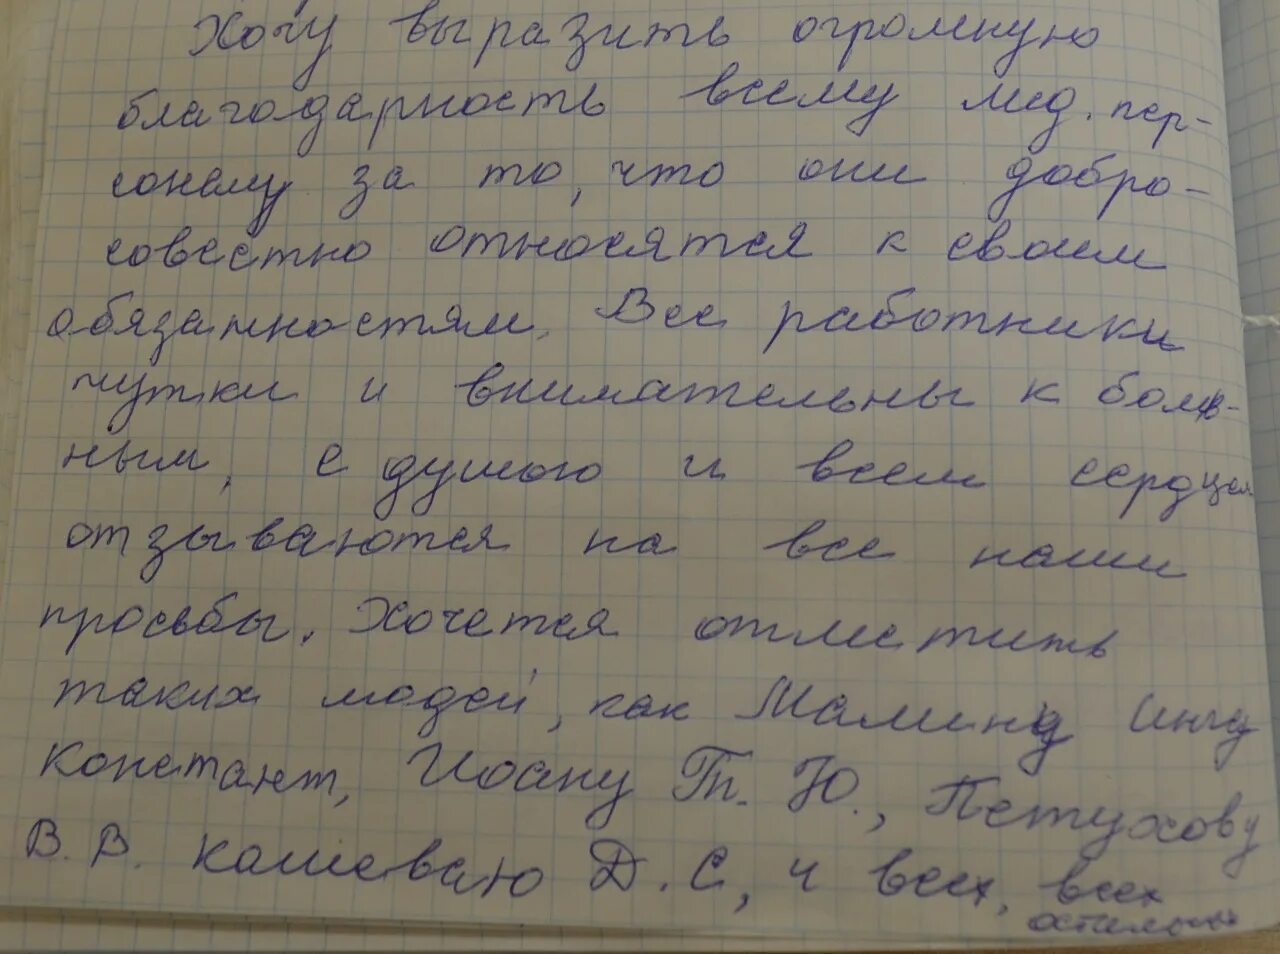 Хочу выразить огромную
благодарность всему мед. пер-
соналу за то, что они добро-
совестно относятся к своим
обязанностям. Все работники
чутки и внимательны к боль-
ным, с душою и всем сердцем
отзываются на все наши
просьбы. Хочется отметить
таких людей, как Мамину Ингу
Констант, Иоану Т. Ю., Петухову
В. В. Кашеваю Д. С, и всех, всех
остальных